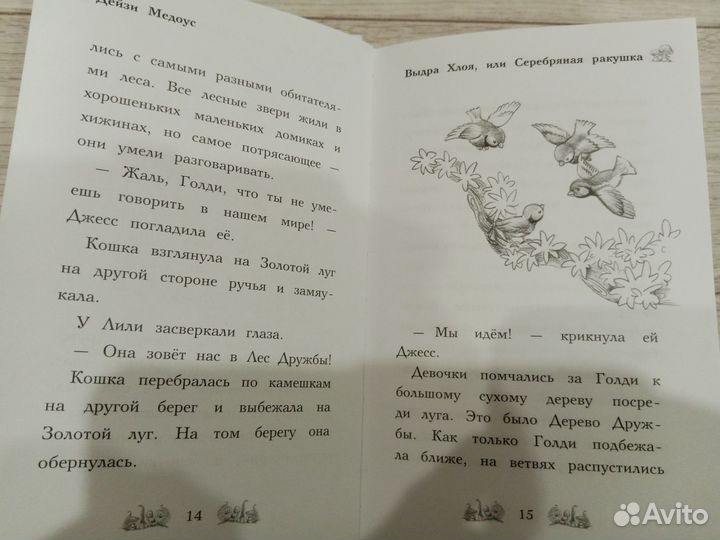 Дейзи Медоус
лись с самыми разными обитателя-
ми леса. Все лесные звери жили в
хорошеньких маленьких домиках и
хижинах, но самое потрясающее —
они умели разговаривать.
— Жаль, Голди, что ты не уме-
ешь говорить в нашем мире! —
Джесс погладила её.
Кошка взглянула на Золотой луг
на другой стороне ручья и замяу-
кала.
У Лили засверкали глаза.
— Она зовёт нас в Лес Дружбы!
Кошка перебралась по камешкам
на другой берег и выбежала на
Золотой луг. На том берегу она
обернулась.
14
Выдра Хлоя, или Серебряная ракушка
— Мы идём! — крикнула ей
Джесс.
Девочки помчались за Голди к
большому сухому дереву посре-
ди луга. Это было Дерево Друж-
бы. Как только Голди подбежа-
ла ближе, на ветвях распустились
15
Avito